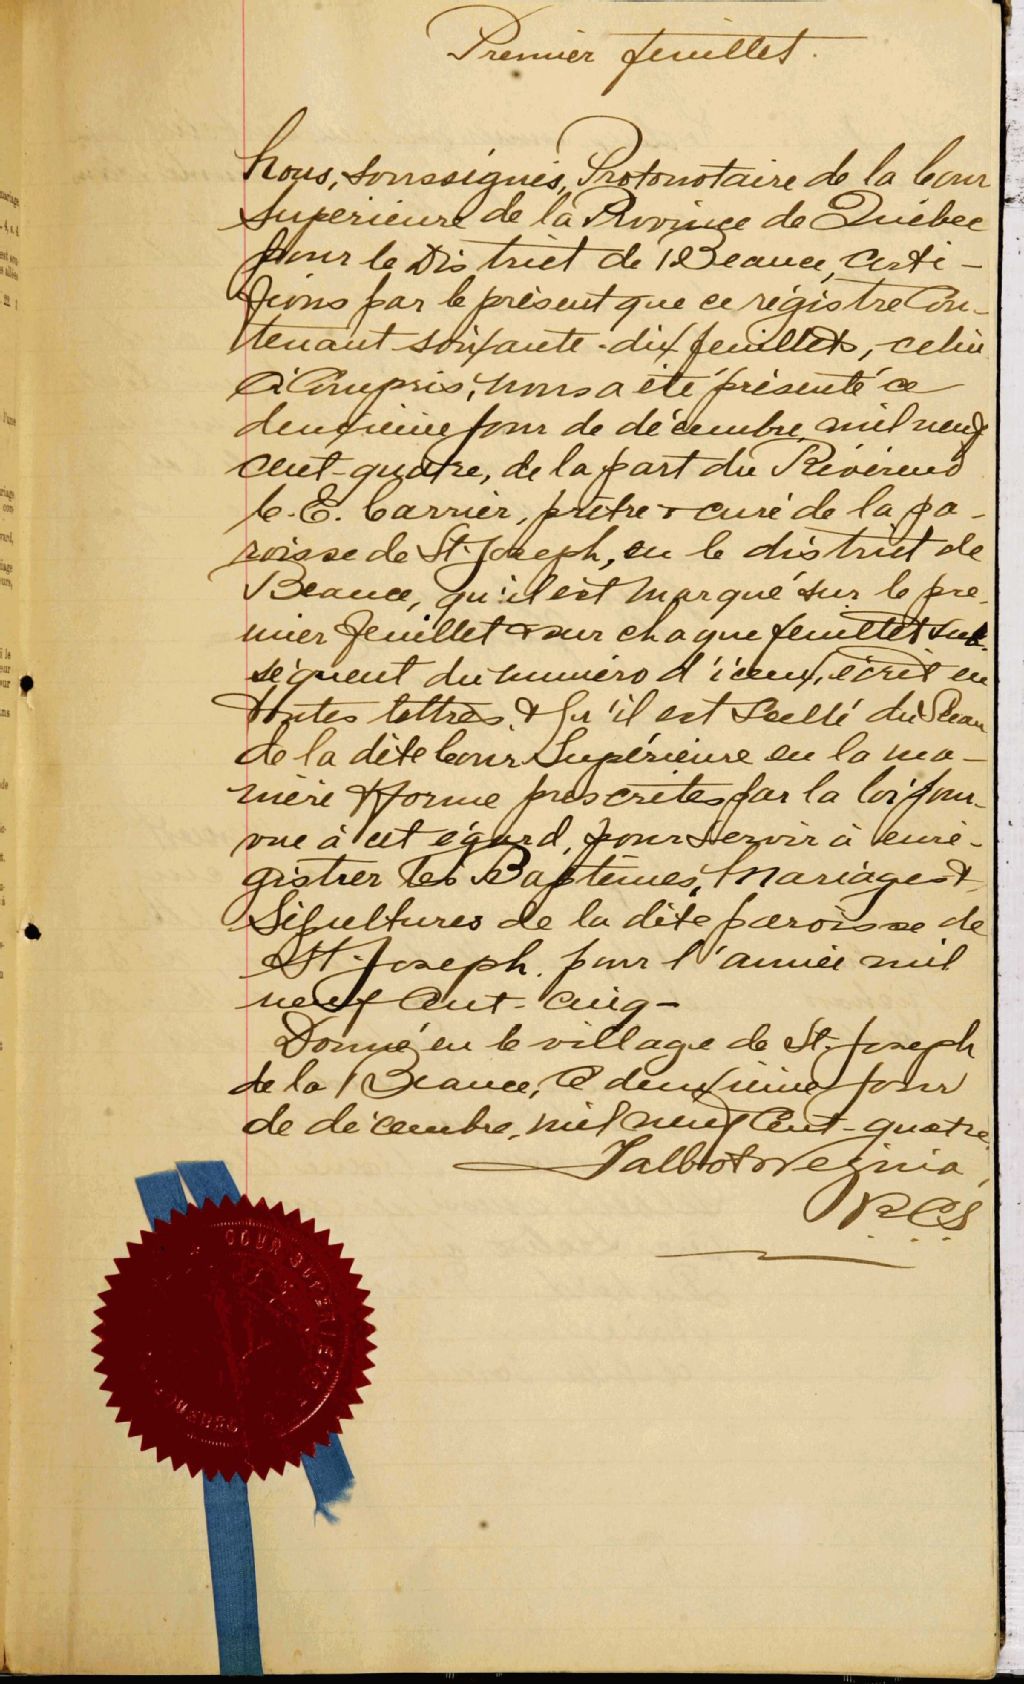 Premier feuillet.
Nous, soussignés, Protonotaire de la Cour
Supérieure de la Province de Québec
pour le District de Beauce, certi-
fions par le présent que ce régistre con-
tenant soixante-dix feuillets, celui
ci compris, nous a été présenté ce
deuxième jour de décembre mil neuf
cent-quatre, de la part du Révérend
C. E. Carrier, prêtre & curé de la pa-
roisse de St. Joseph, en le district de
Beauce, qu'il est marqué sur le pre-
mier feuillet & sur chaque feuillet sub-
séquent du numéro d'iceux, écrit en
toutes lettres & qu'il est scellé du Sceau
de la dite Cour Supérieure en la ma-
nière & forme prescrites par la loi pour-
vue à cet égard, pour servir à enré-
gistrer les Baptêmes, Mariages &
Sépultures de la dite paroisse de
St. Joseph. pour l'année mil
neuf cent-cinq-
Donné en le village de St. Joseph
de la Beauce, ce deuxième jour
de décembre, mil neuf cent-quatre.
Talbot & Vézina,
P.C.S.
COUR SUPERIEURE